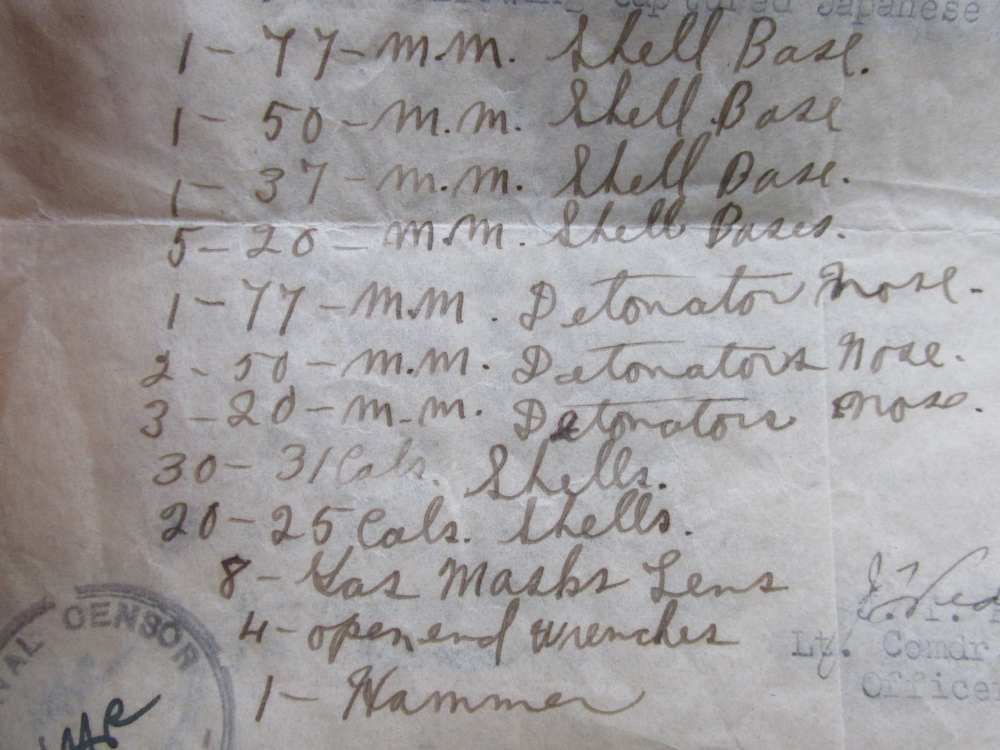 captured Japanese
1 - 77 - m.m. Shell Base.
1 - 50 - m.m. Shell Base
1 - 37 - m.m. Shell Base.
5 - 20 - m.m. Shell Bases.
1 - 77 - m.m. Detonator Nose.
2 - 50 - m.m. Detonators Nose.
3 - 20 - m.m. Detonators Nose.
30 - 31 Cals. Shells.
20 - 25 Cals. Shells.
8 - Gas Masks Lens
4 - open end wrenches
1 - Hammer
Lt. Comdr
Office
NAL CENSOR